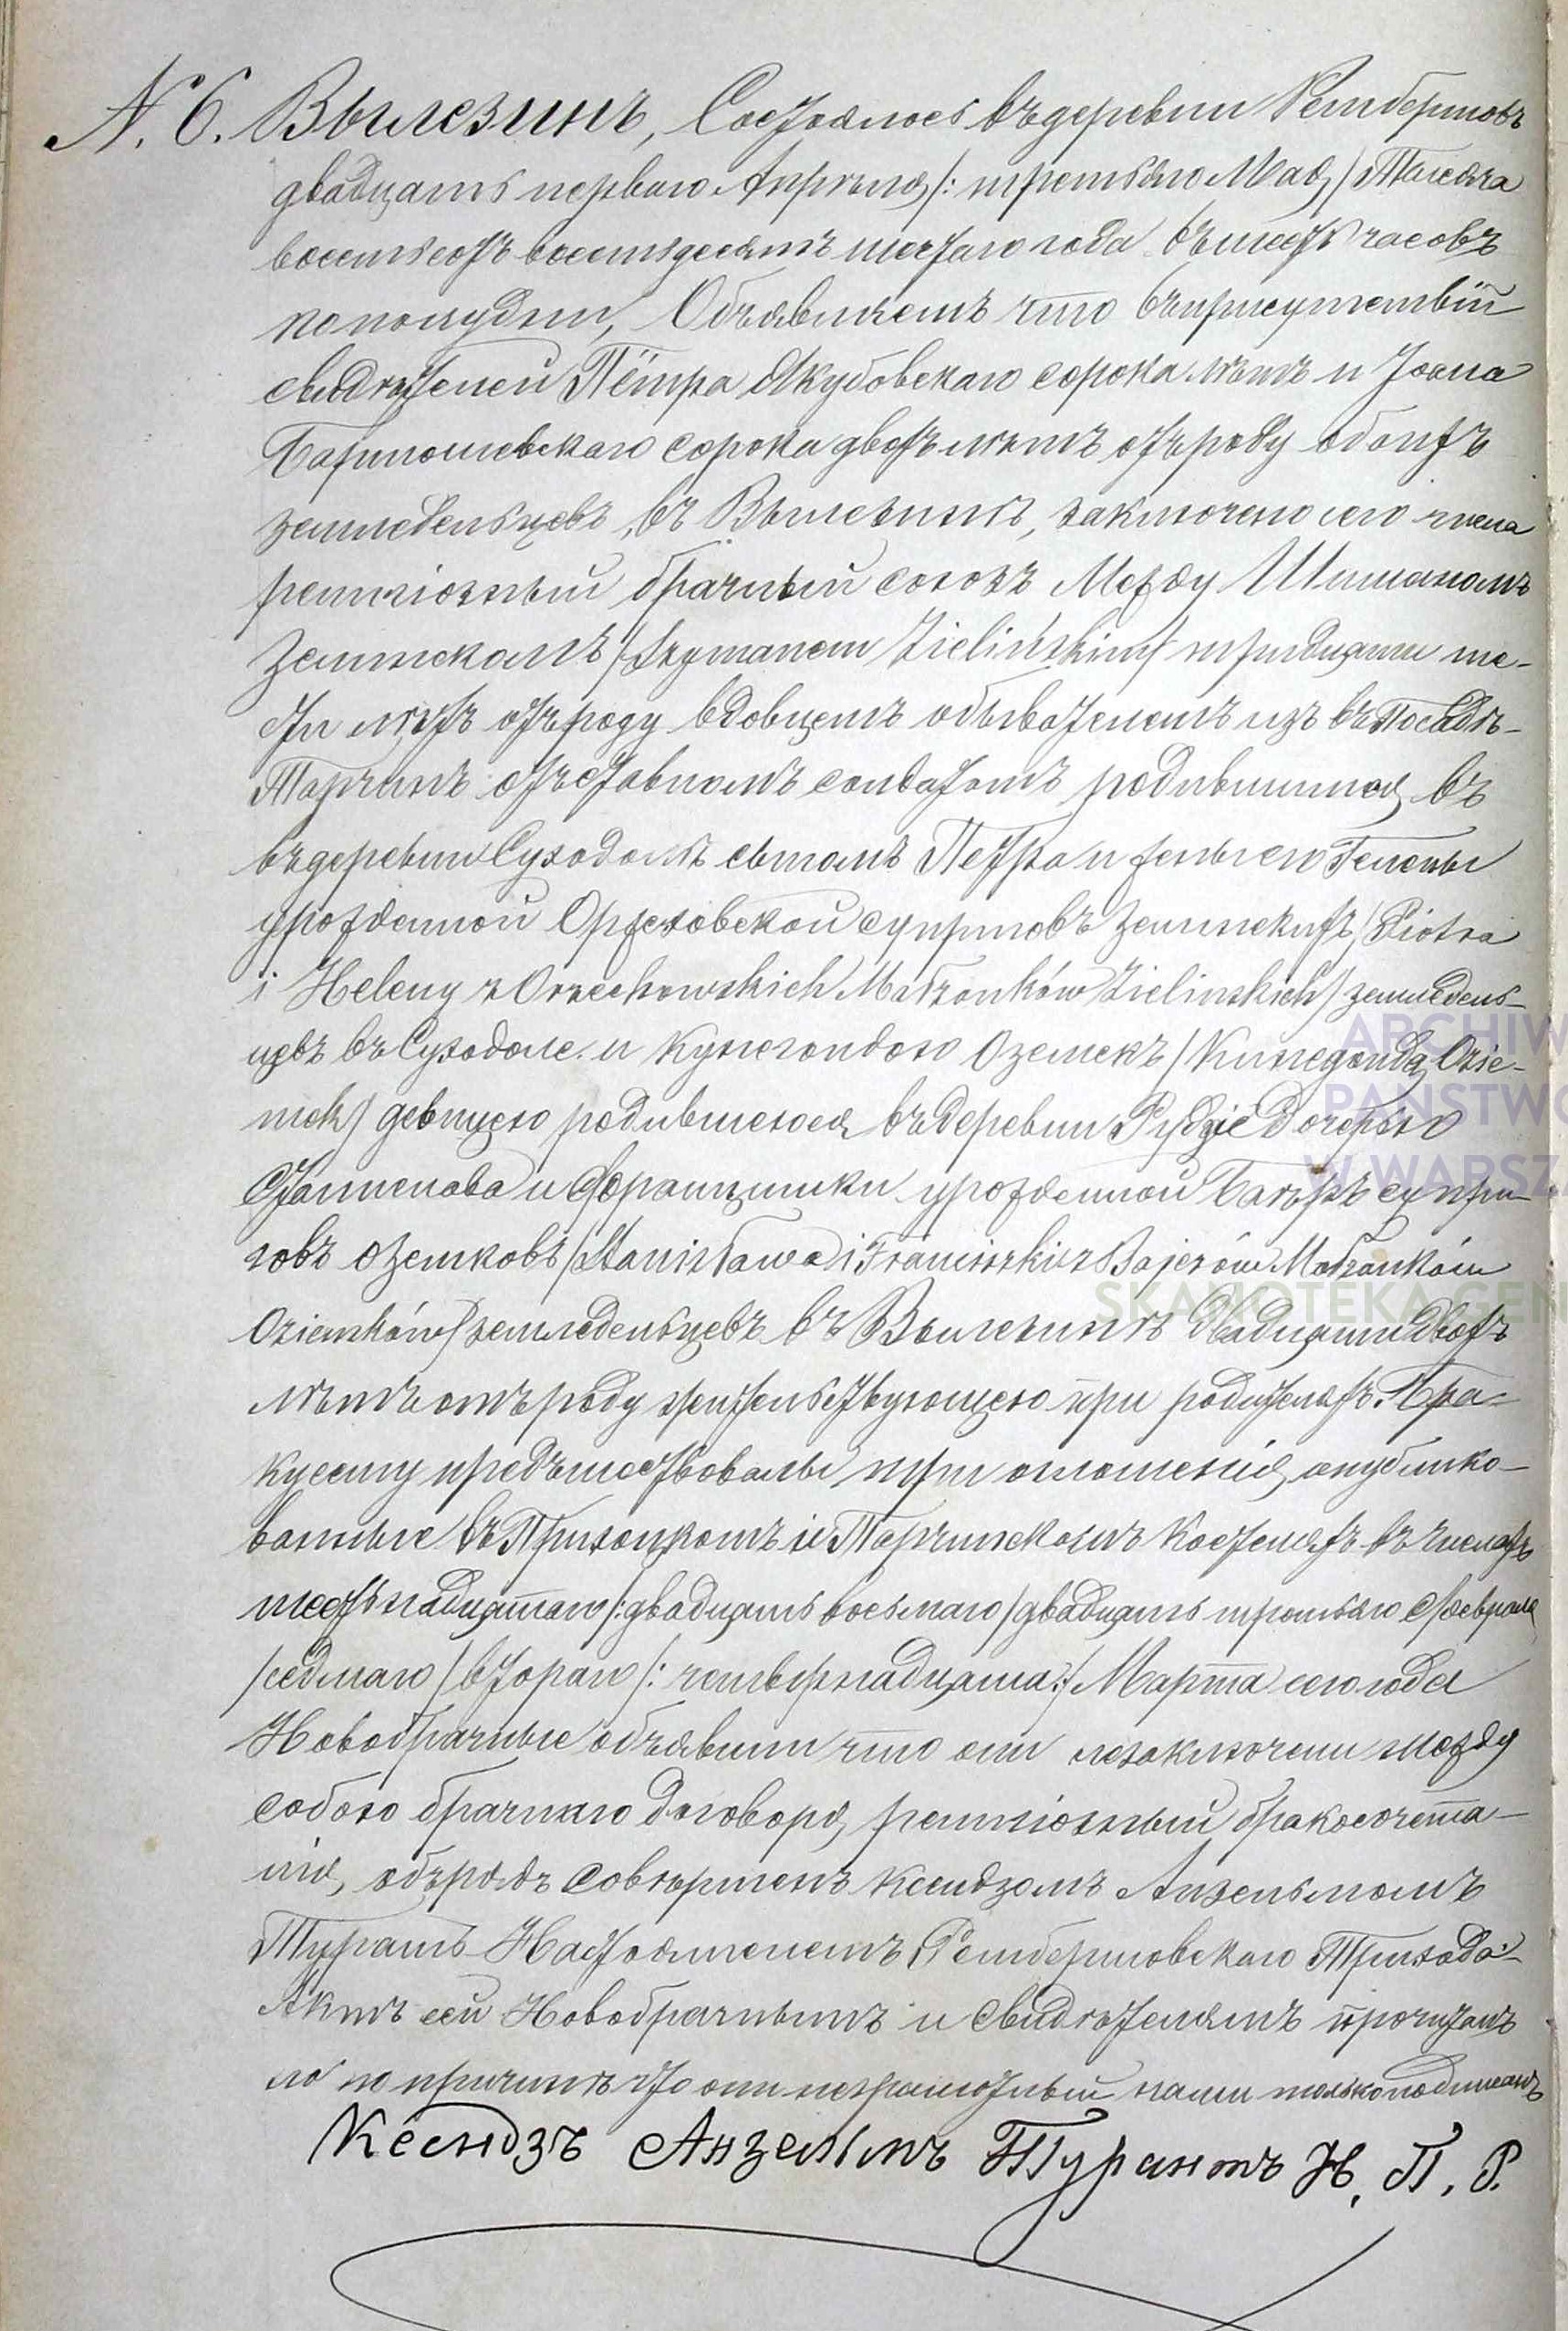 N. 6. Вылезинъ, Состоялось въ деревни Рембертовъ
двадцать перваго Апрѣля /: третьяго Мая / Тысяча
восемьсотъ восемьдесятъ шестаго года въ шесть часовъ
пополудни, Объявляемъ что въ присутствіи
свидѣтелей Пётра Якубовскаго сорока лѣтъ и Іоана
Бартошевскаго сорока двохъ лѣтъ отъ роду обоихъ
земледельцевъ, въ Вылезинѣ, заключено сего числа
религіозный брачный союзъ Между Шиманомъ
Зелинскимъ /Szymanem Zielińskim/ тридцати ше-
сти лѣтъ отъ роду вдовцемъ обывателемъ изъ въ Посадѣ
Тарчинъ отставнымъ солдатомъ родившимся въ
въ деревни Суходолѣ сыномъ Петра и жены его Гелены
урожденной Оржеховской супруговъ Зелинскихъ /Piotra
i Heleny z Orzechowskich Małżonków Zielinskich/ земледель-
цевъ въ Суходоле и Кунегондою Оземекъ /Kunegondą Ozie-
mek/ девицею родившеюся въ деревни Рудзіе Дочерью
Станислава и Францишки урожденной Баеръ супру-
говъ Оземковъ /Stanisława i Franciszki z Bajerów Małżonków
Oziemków/ земледельцевъ въ Вылезинѣ двадцати двохъ
лѣтъ отъ роду жительствующею при родителяхъ. Бра-
ку сему предшествовалы три оглошенія опублико-
ванные въ Прихоцкомъ и Тарчинскомъ Костеляхъ въ числахъ
шестьнадцатаго /: двадцать восьмаго / двадцать третьяго Февраля
/седмаго / втораго /: четвернадцата :/ Марта сего года
Новобрачные объявили что они незаключили между
собою брачнаго договора, религіозный бракосочета-
нія, обрядъ совѣршенъ Ксендзомъ Анзельмомъ
Турантъ Настоятелемъ Рембертовскаго Прихода
Актъ сей Новобрачнымъ и Свидѣтелямъ прочитанъ
но по причинѣ что они неграмотный нами только подписанъ
Ксендзъ Анзельмъ Турантъ Н. П. Р.
ARCHIW
PAŃSTWO
W WARSZ
SKANOTEKA GEN